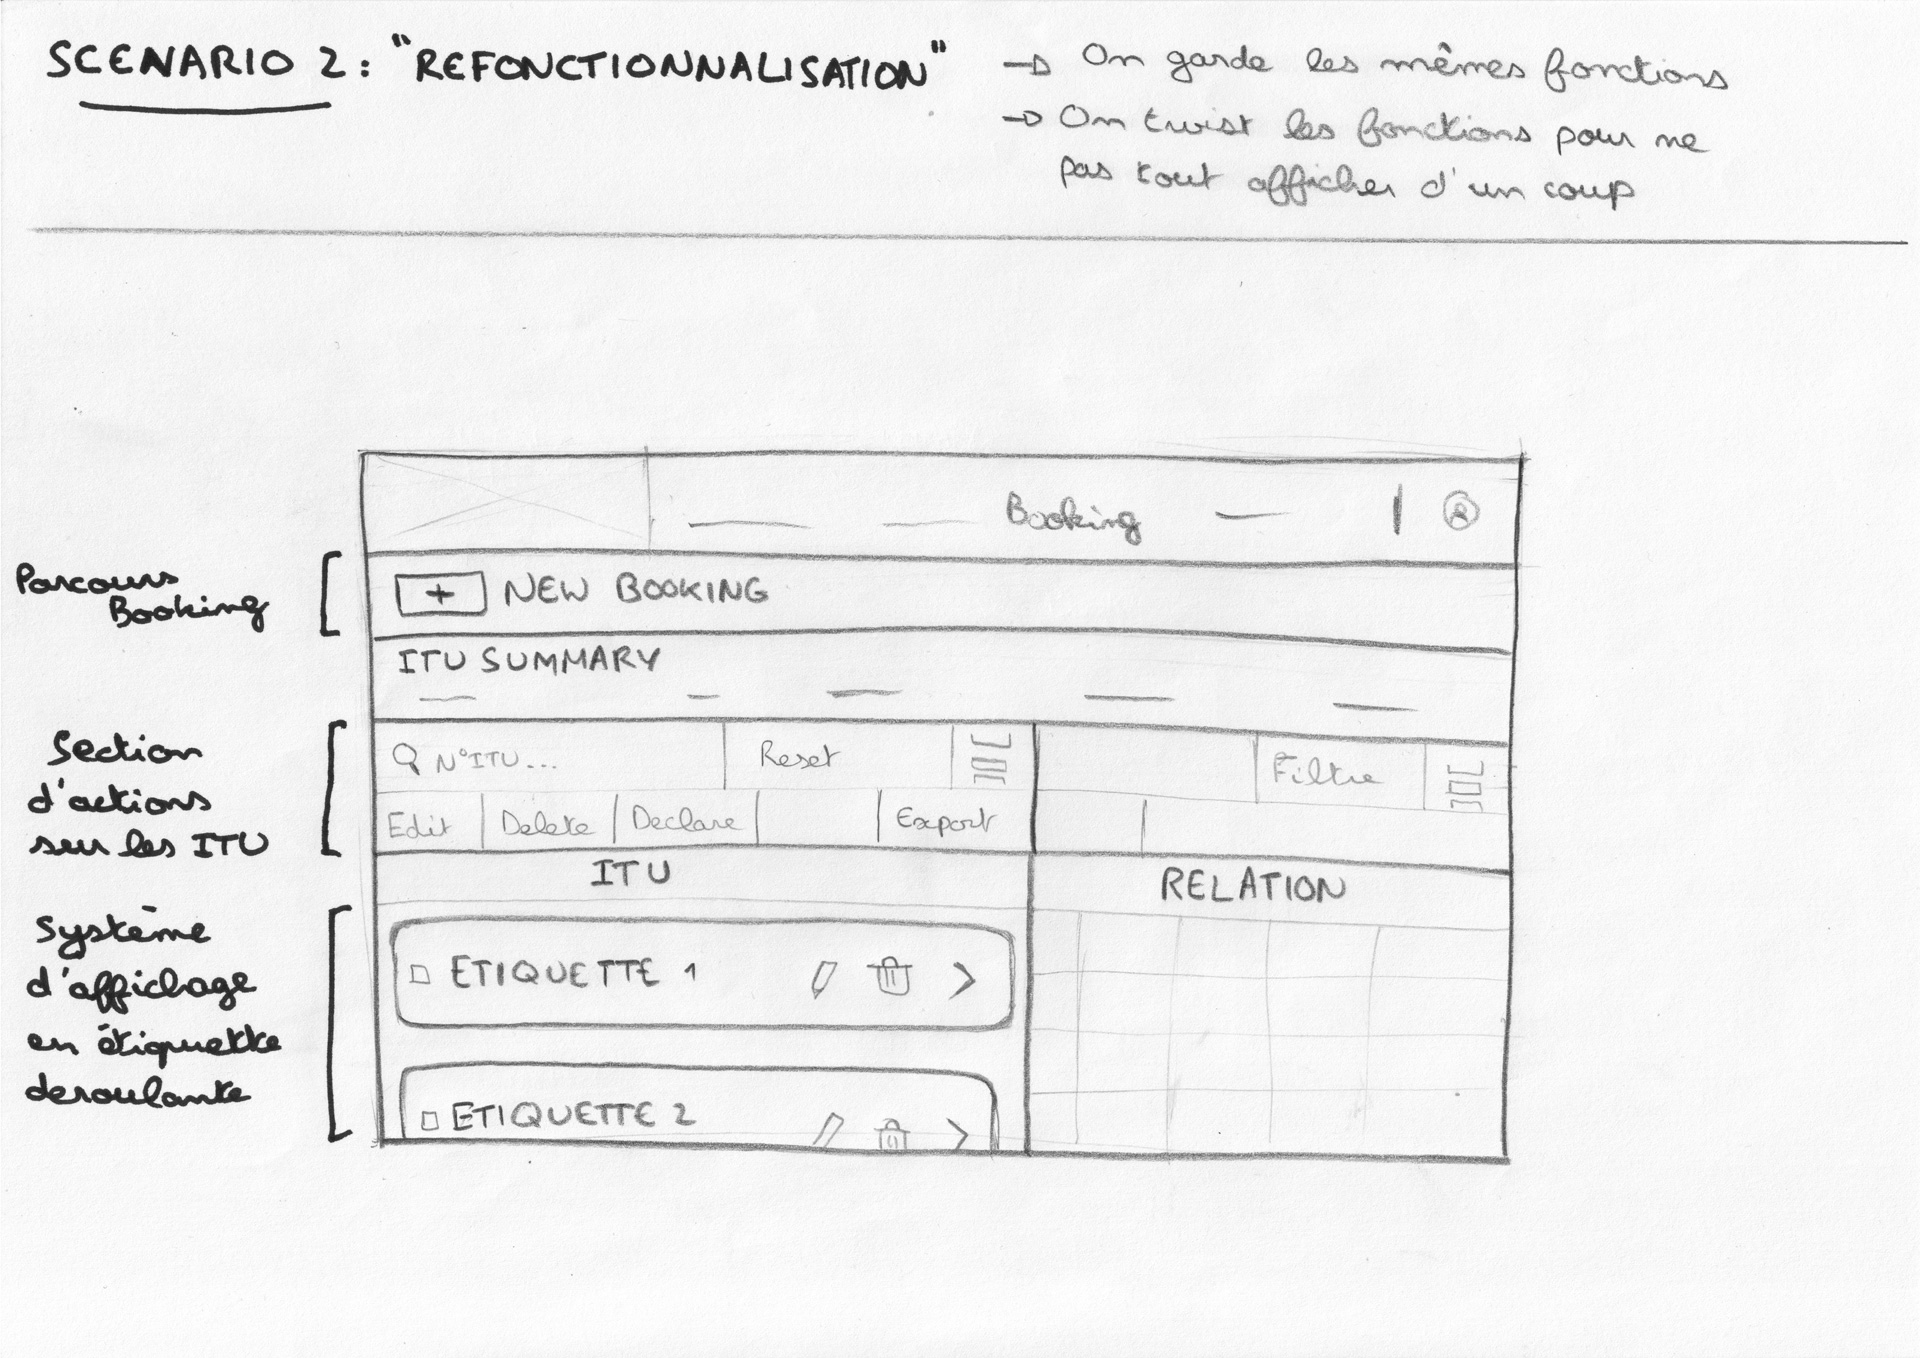 SCENARIO 2 : "REFONCTIONNALISATION"
→ On garde les mêmes fonctions
→ On twist les fonctions pour ne
pas tout afficher d'un coup
Booking
Parcours
Booking
+ NEW BOOKING
ITU SUMMARY
Section
d'actions
sur les ITU
N°ITU...
Reset
Filtre
Edit
Delete
Declare
Export
ITU
RELATION
Système
d'affichage
en étiquette
deroulante
ETIQUETTE 1
ETIQUETTE 2